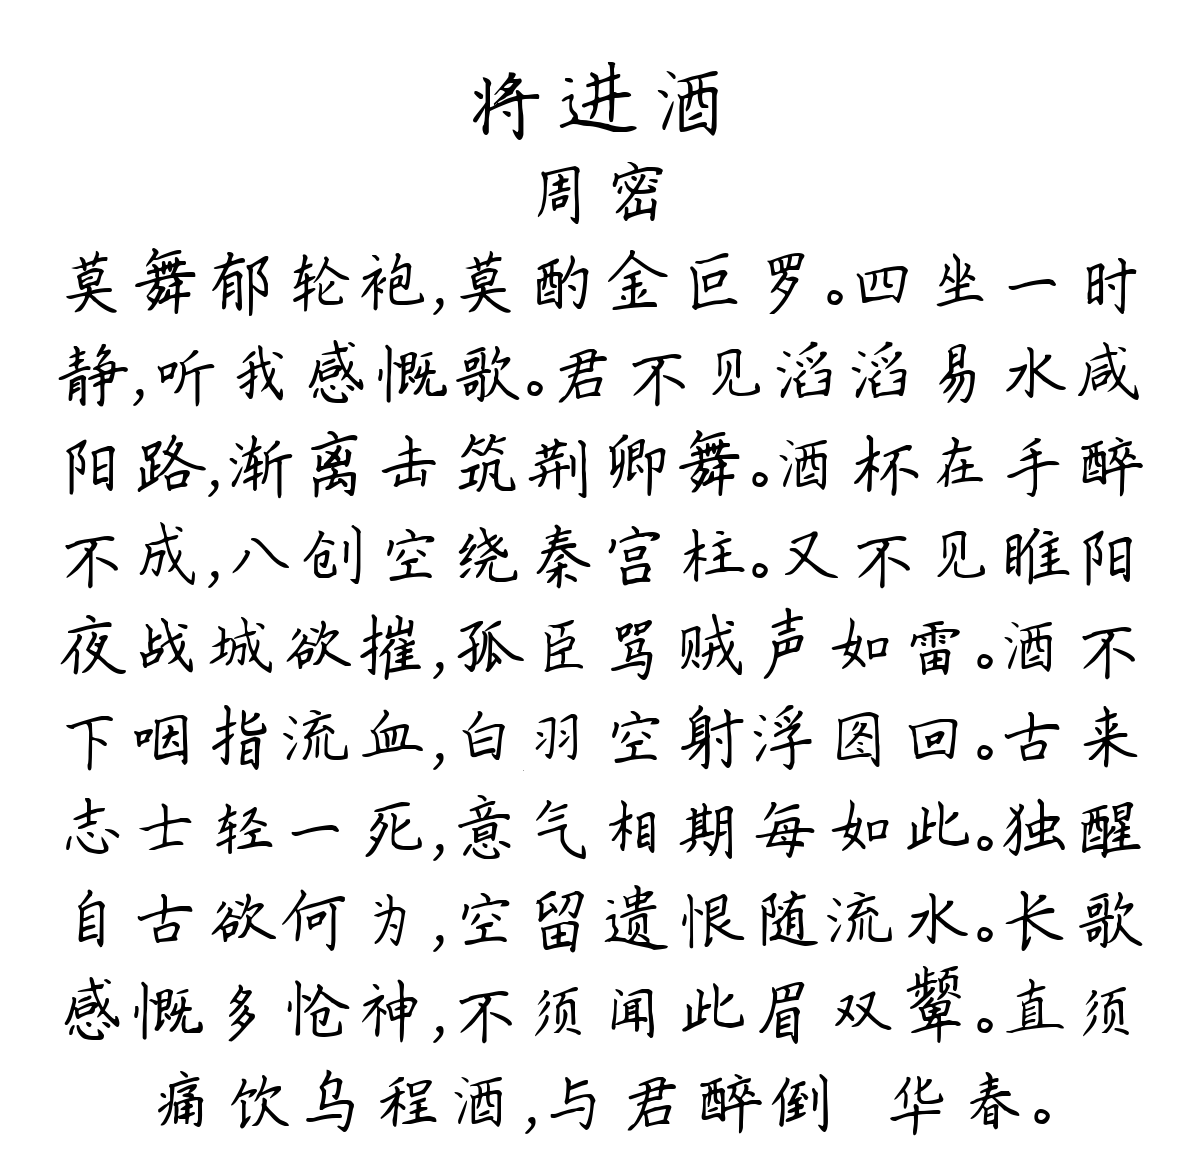 将进酒
周密
莫舞郁轮袍,莫酌金叵罗。四坐一时
静,听我感慨歌。君不见滔滔易水咸
阳路,渐离击筑荆卿舞。酒杯在手醉
不成,八创空绕秦宫柱。又不见睢阳
夜战城欲摧,孤臣骂贼声如雷。酒不
下咽指流血,白羽空射浮图回。古来
志士轻一死,意气相期每如此。独醒
自古欲何为,空留遗恨随流水。长歌
感慨多怆神,不须闻此眉双颦。直须
痛饮乌程酒,与君醉倒 华春。